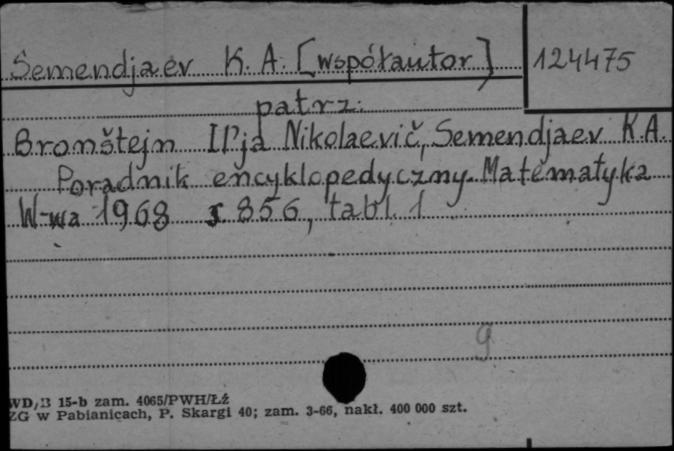 Semendjaev K. A. [współautor]
124475
patrz:
Bronštejn Il'ja Nikolaevič, Semendjaev K.A.
Poradnik encyklopedyczny. Matematyka
W-wa 1968 s. 856, tabl. 1
g
WD/B 15-b zam. 4065/PWH/Łź
ZG w Pabianicach, P. Skargi 40; zam. 3-66, nakł. 400 000 szt.